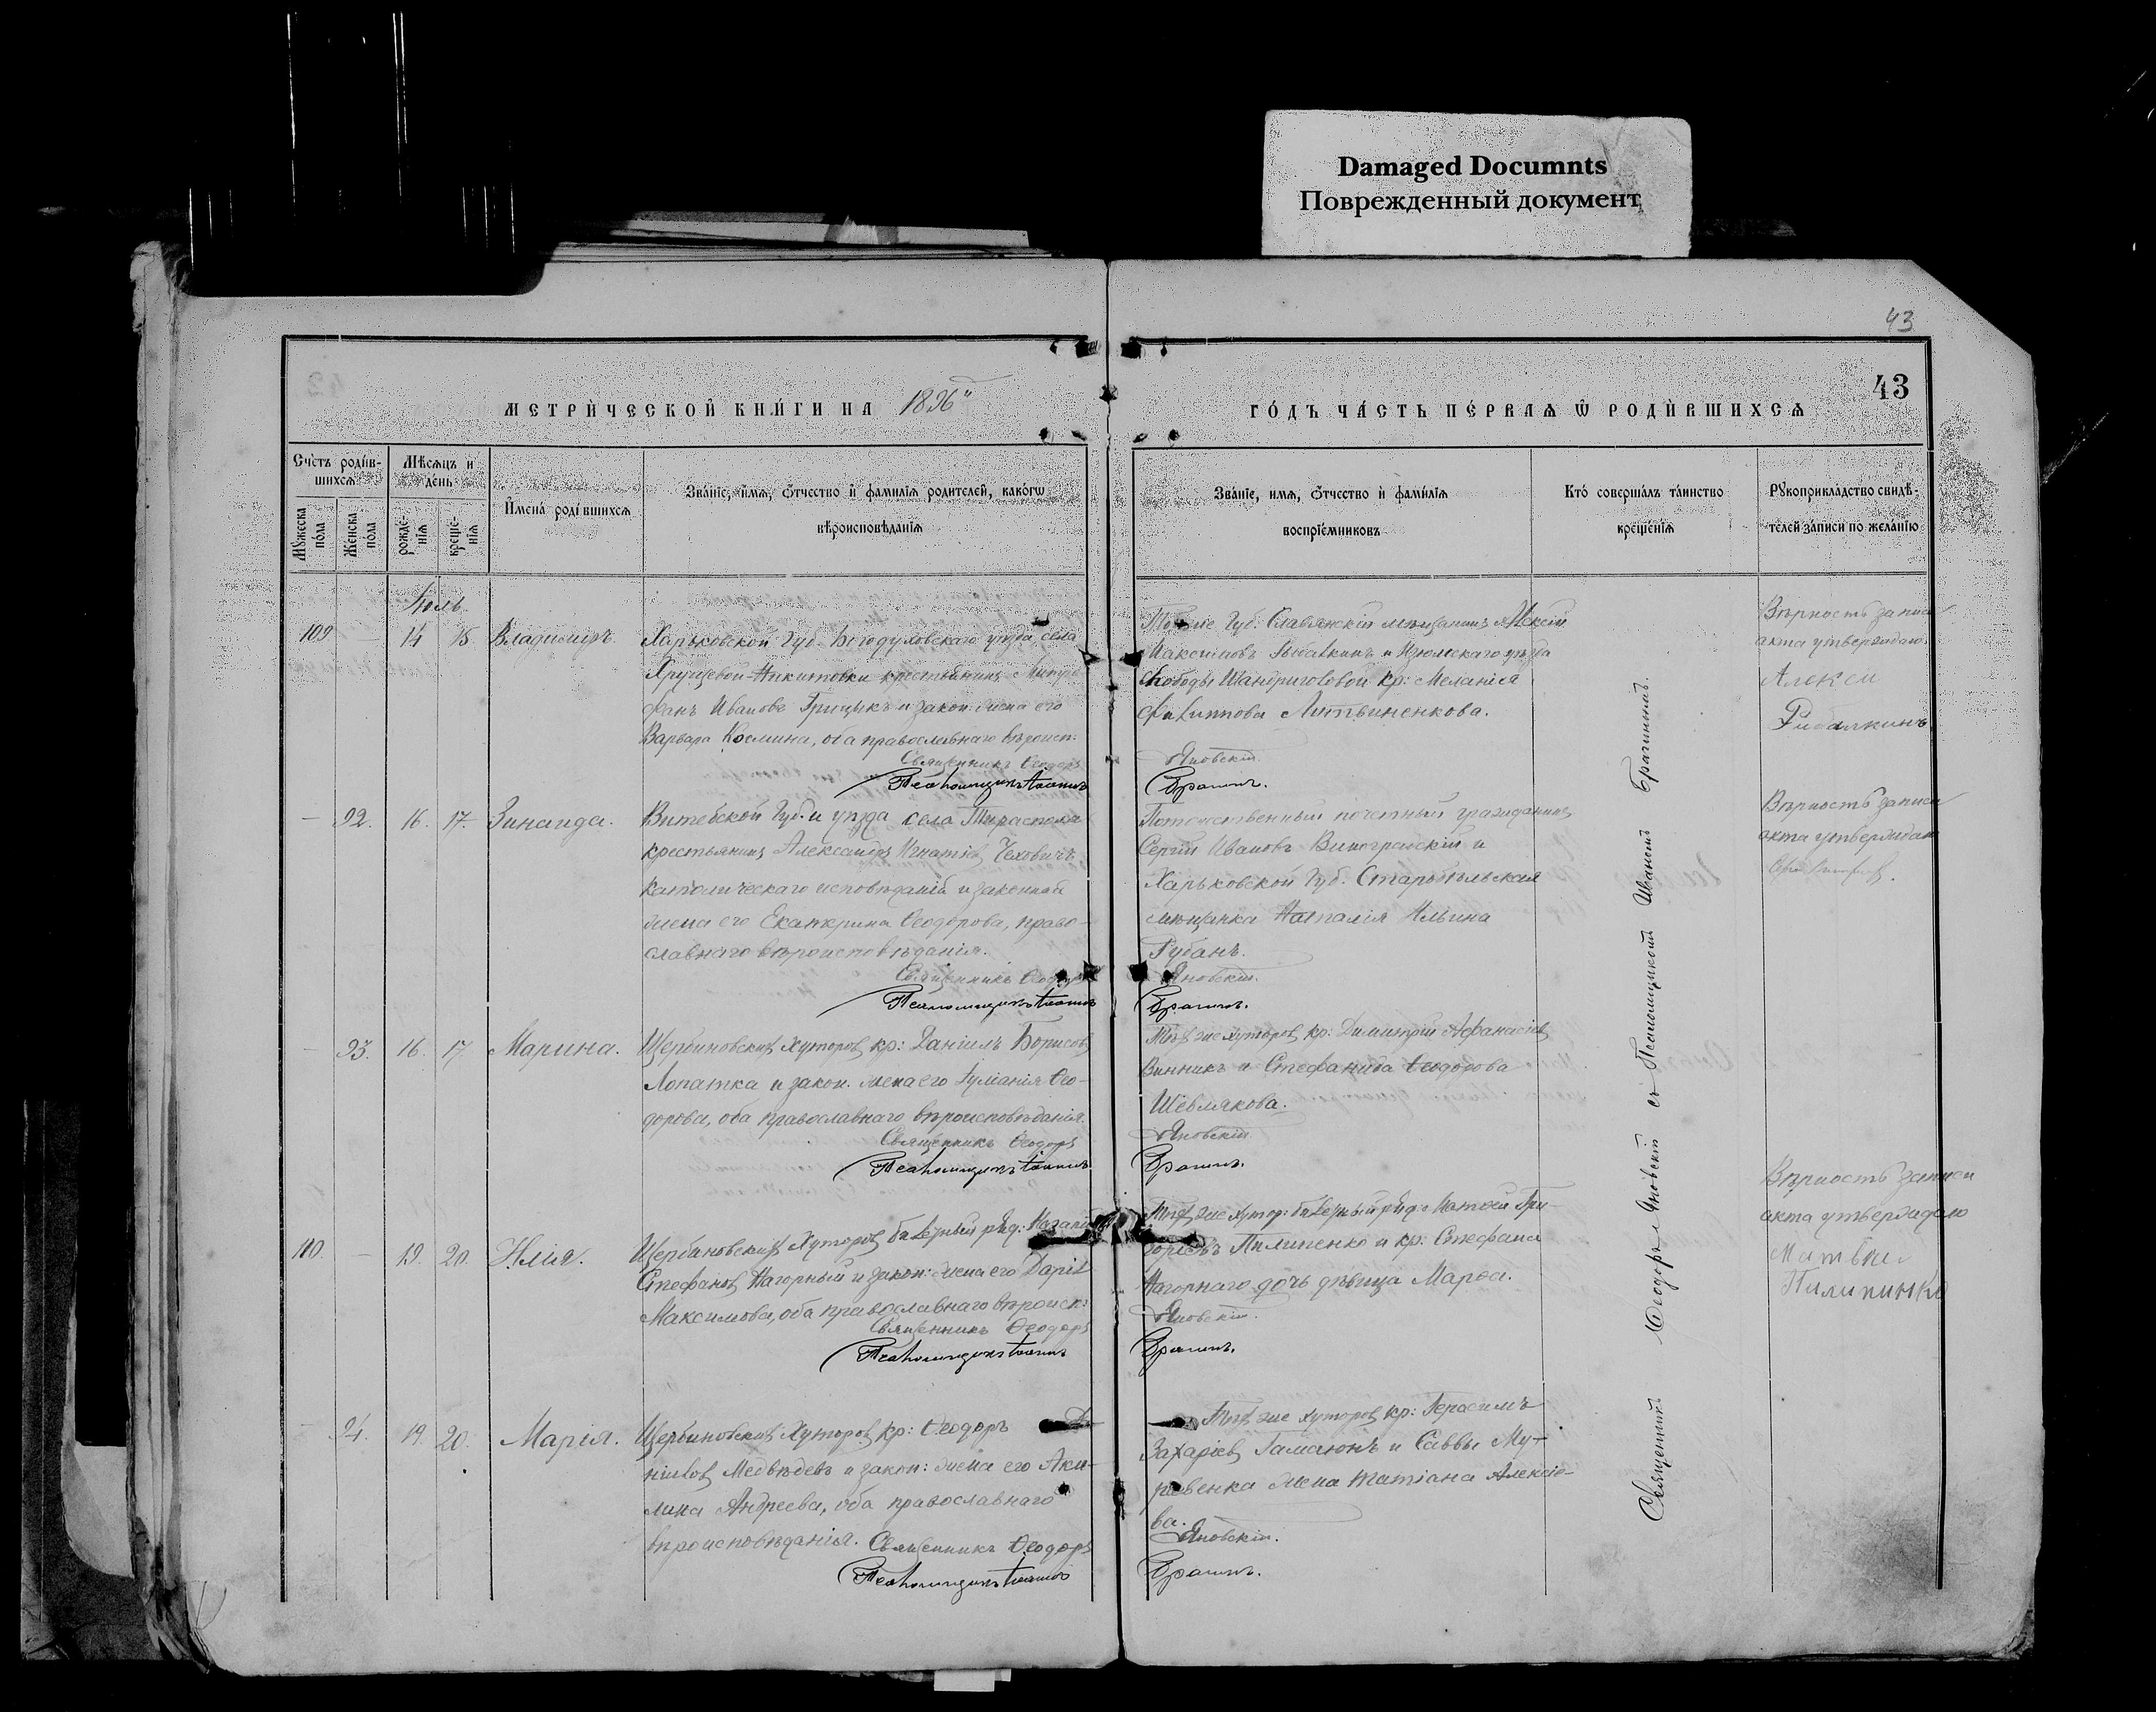 Damaged Documnts
Поврежденный документ
43
43
МЕТРИЧЕСКОЙ КНИГИ НА 1896й
ГОДЪ ЧАСТЬ ПЕРВАѦ Ѿ РОДИВШИХСѦ
Счетъ родив-
шихсѧ
Мѣсѧцъ и
день
Мужеска
пола
Женска
пола
рожде-
нія
креще-
нія
Имена родившихсѧ
Званіе, имѧ, Ѿчество и фамиліѧ родителей, какогѡ
вѣроисповѣданіѧ
Званіе, имѧ, Ѿчество и фамиліѧ
воспріемниковъ
Кто совершалъ таинство
крещеніѧ
Рукоприкладство свидѣ-
телей записи по желанію
Іюль
109 14 15 Владиміръ.
Харьковской Губ. Богодуховскаго уѣзда, села
Хрущевой-Никитовки крестьянинъ Митро-
фанъ Ивановъ Грицыкъ и закон. жена его
Варвара Космина, оба православнаго вѣроисп.
Священникъ Ѳеодоръ
Псаломщикъ Іоаннъ
Той же Губ. Славянскій мѣщанинъ Алексій
Максимовъ Рыбалкинъ и Изюмскаго уѣзда
слободы Шандриголовой кр: Меланія
Филиппова Литвиненкова.
Яновскій.
Брагинъ.
Вѣрность записи
акта утверждаю
Алексей
Рибалкинъ
— 92. 16. 17. Зинаида.
Витебской Губ. и уѣзда села Тирасполя
крестьянинъ Александръ Игнатіевъ Чеховичъ
католическаго исповѣданія и законная
жена его Екатерина Ѳеодорова, право-
славнаго вѣроисповѣданія.
Священникъ Ѳеодоръ
Псаломщикъ Іоаннъ
Потомственный почетный гражданинъ
Сергій Ивановъ Виноградскій и
Харьковской Губ. Старобѣльская
мѣщанка Наталія Ильина
Губанъ.
Яновскій.
Брагинъ.
Вѣрность записи
акта утверждаю
— 93. 16. 17 Марина.
Щербиновскихъ Хуторовъ кр: Даніилъ Борисовъ
Лопатка и закон. жена его Іуліанія Ѳео-
дорова, оба православнаго вѣроисповѣданія.
Священникъ Ѳеодоръ
Псаломщикъ Іоаннъ
Тѣхъ же хуторовъ кр: Димитрій Аѳанасіевъ
Винникъ и Стефанида Ѳеодорова
Шевлякова.
Яновскій
Брагинъ.
110. — 19. 20. Илія.
Щербиновскихъ Хуторовъ билетный ряд: Назарій
Стефановъ Нагорный и закон: жена его Дарія
Максимова, оба православнаго вѣроисп:
Священникъ Ѳеодоръ
Псаломщикъ Іоаннъ
Тѣхъ же хутор: билетный ряд: Матѳей Гри-
горіевъ Пилипенко и кр: Стефана
Нагорнаго дочь дѣвица Марѳа.
Яновскій.
Брагинъ.
Вѣрность записи
акта утверждаю
Матвѣй
Пилипинко
— 94. 19. 20. Марія.
Щербиновскихъ Хуторовъ кр: Ѳеодоръ Да-
ніиловъ Медвѣдевъ и закон: жена его Аки-
лина Андреева, оба православнаго
вѣроисповѣданія. Священникъ Ѳеодоръ
Псаломщикъ Іоаннъ
Тѣхъ же хуторовъ кр: Герасимъ
Захаріевъ Гамаюнъ и Саввы Му-
равенка жена Татіана Алексіе-
ва.
Яновскій.
Брагинъ.
Священникъ Ѳеодоръ Яновскій съ Псаломщикомъ Иваномъ Брагинымъ.